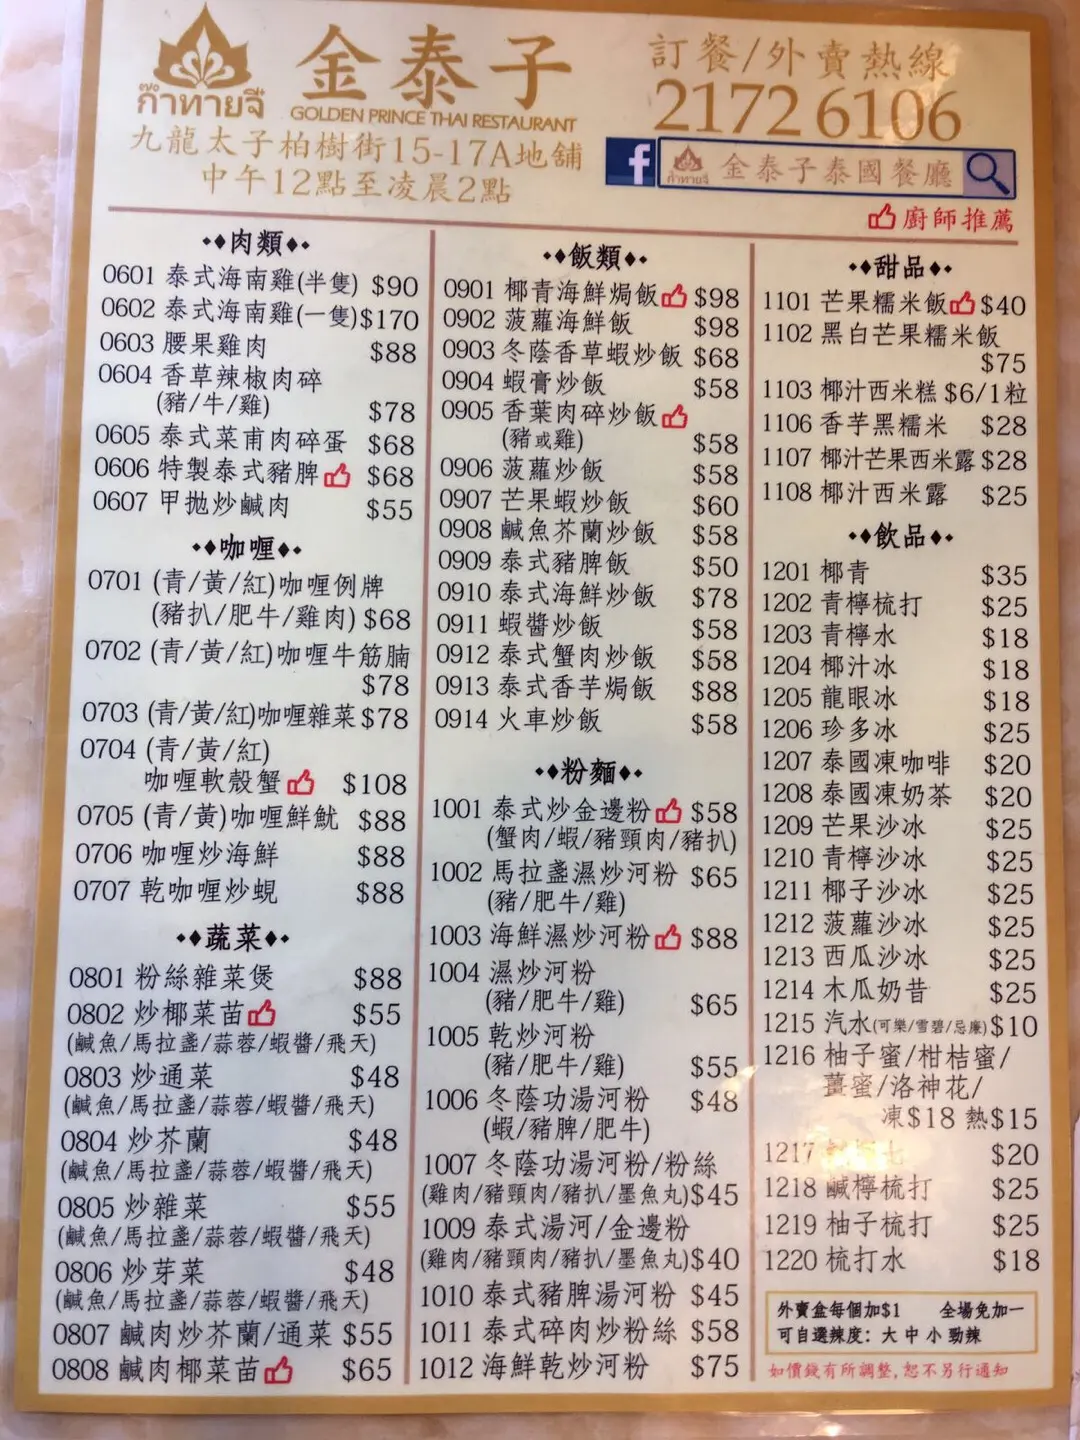 ก๊ำทายจี่
金泰子
GOLDEN PRINCE THAI RESTAURANT
訂餐/外賣熱線
2172 6106
九龍太子柏樹街15-17A地舖
中午12點至凌晨2點
f 金泰子泰國餐廳
廚師推薦
肉類
0601 泰式海南雞(半隻) $90
0602 泰式海南雞(一隻) $170
0603 腰果雞肉 $88
0604 香草辣椒肉碎
(豬/牛/雞) $78
0605 泰式菜甫肉碎蛋 $68
0606 特製泰式豬脾 $68
0607 甲拋炒鹹肉 $55
咖喱
0701 (青/黃/紅)咖喱例牌
(豬扒/肥牛/雞肉) $68
0702 (青/黃/紅)咖喱牛筋腩
$78
0703 (青/黃/紅)咖喱雜菜 $78
0704 (青/黃/紅)
咖喱軟殼蟹 $108
0705 (青/黃)咖喱鮮魷 $88
0706 咖喱炒海鮮 $88
0707 乾咖喱炒蜆 $88
蔬菜
0801 粉絲雜菜煲 $88
0802 炒椰菜苗 $55
(鹹魚/馬拉盞/蒜蓉/蝦醬/飛天)
0803 炒通菜 $48
(鹹魚/馬拉盞/蒜蓉/蝦醬/飛天)
0804 炒芥蘭 $48
(鹹魚/馬拉盞/蒜蓉/蝦醬/飛天)
0805 炒雜菜 $55
(鹹魚/馬拉盞/蒜蓉/蝦醬/飛天)
0806 炒芽菜 $48
(鹹魚/馬拉盞/蒜蓉/蝦醬/飛天)
0807 鹹肉炒芥蘭/通菜 $55
0808 鹹肉椰菜苗 $65
飯類
0901 椰青海鮮焗飯 $98
0902 菠蘿海鮮飯 $98
0903 冬蔭香草蝦炒飯 $68
0904 蝦膏炒飯 $58
0905 香葉肉碎炒飯
(豬或雞) $58
0906 菠蘿炒飯 $58
0907 芒果蝦炒飯 $60
0908 鹹魚芥蘭炒飯 $58
0909 泰式豬脾飯 $50
0910 泰式海鮮炒飯 $78
0911 蝦醬炒飯 $58
0912 泰式蟹肉炒飯 $58
0913 泰式香芋焗飯 $88
0914 火車炒飯 $58
粉麵
1001 泰式炒金邊粉 $58
(蟹肉/蝦/豬頸肉/豬扒)
1002 馬拉盞濕炒河粉 $65
(豬/肥牛/雞)
1003 海鮮濕炒河粉 $88
1004 濕炒河粉
(豬/肥牛/雞) $65
1005 乾炒河粉
(豬/肥牛/雞) $55
1006 冬蔭功湯河粉 $48
(蝦/豬脾/肥牛)
1007 冬蔭功湯河粉/粉絲
(雞肉/豬頸肉/豬扒/墨魚丸) $45
1009 泰式湯河/金邊粉
(雞肉/豬頸肉/豬扒/墨魚丸) $40
1010 泰式豬脾湯河粉 $45
1011 泰式碎肉炒粉絲 $58
1012 海鮮乾炒河粉 $75
甜品
1101 芒果糯米飯 $40
1102 黑白芒果糯米飯
$75
1103 椰汁西米糕 $6/1粒
1106 香芋黑糯米 $28
1107 椰汁芒果西米露 $28
1108 椰汁西米露 $25
飲品
1201 椰青 $35
1202 青檸梳打 $25
1203 青檸水 $18
1204 椰汁冰 $18
1205 龍眼冰 $18
1206 珍多冰 $25
1207 泰國凍咖啡 $20
1208 泰國凍奶茶 $20
1209 芒果沙冰 $25
1210 青檸沙冰 $25
1211 椰子沙冰 $25
1212 菠蘿沙冰 $25
1213 西瓜沙冰 $25
1214 木瓜奶昔 $25
1215 汽水(可樂/雪碧/忌廉) $10
1216 柚子蜜/柑桔蜜/
薑蜜/洛神花/
凍$18 熱$15
1217 $20
1218 鹹檸梳打 $25
1219 柚子梳打 $25
1220 梳打水 $18
外賣盒每個加$1 全場免加一
可自選辣度：大 中 小 勁辣
如價錢有所調整，恕不另行通知